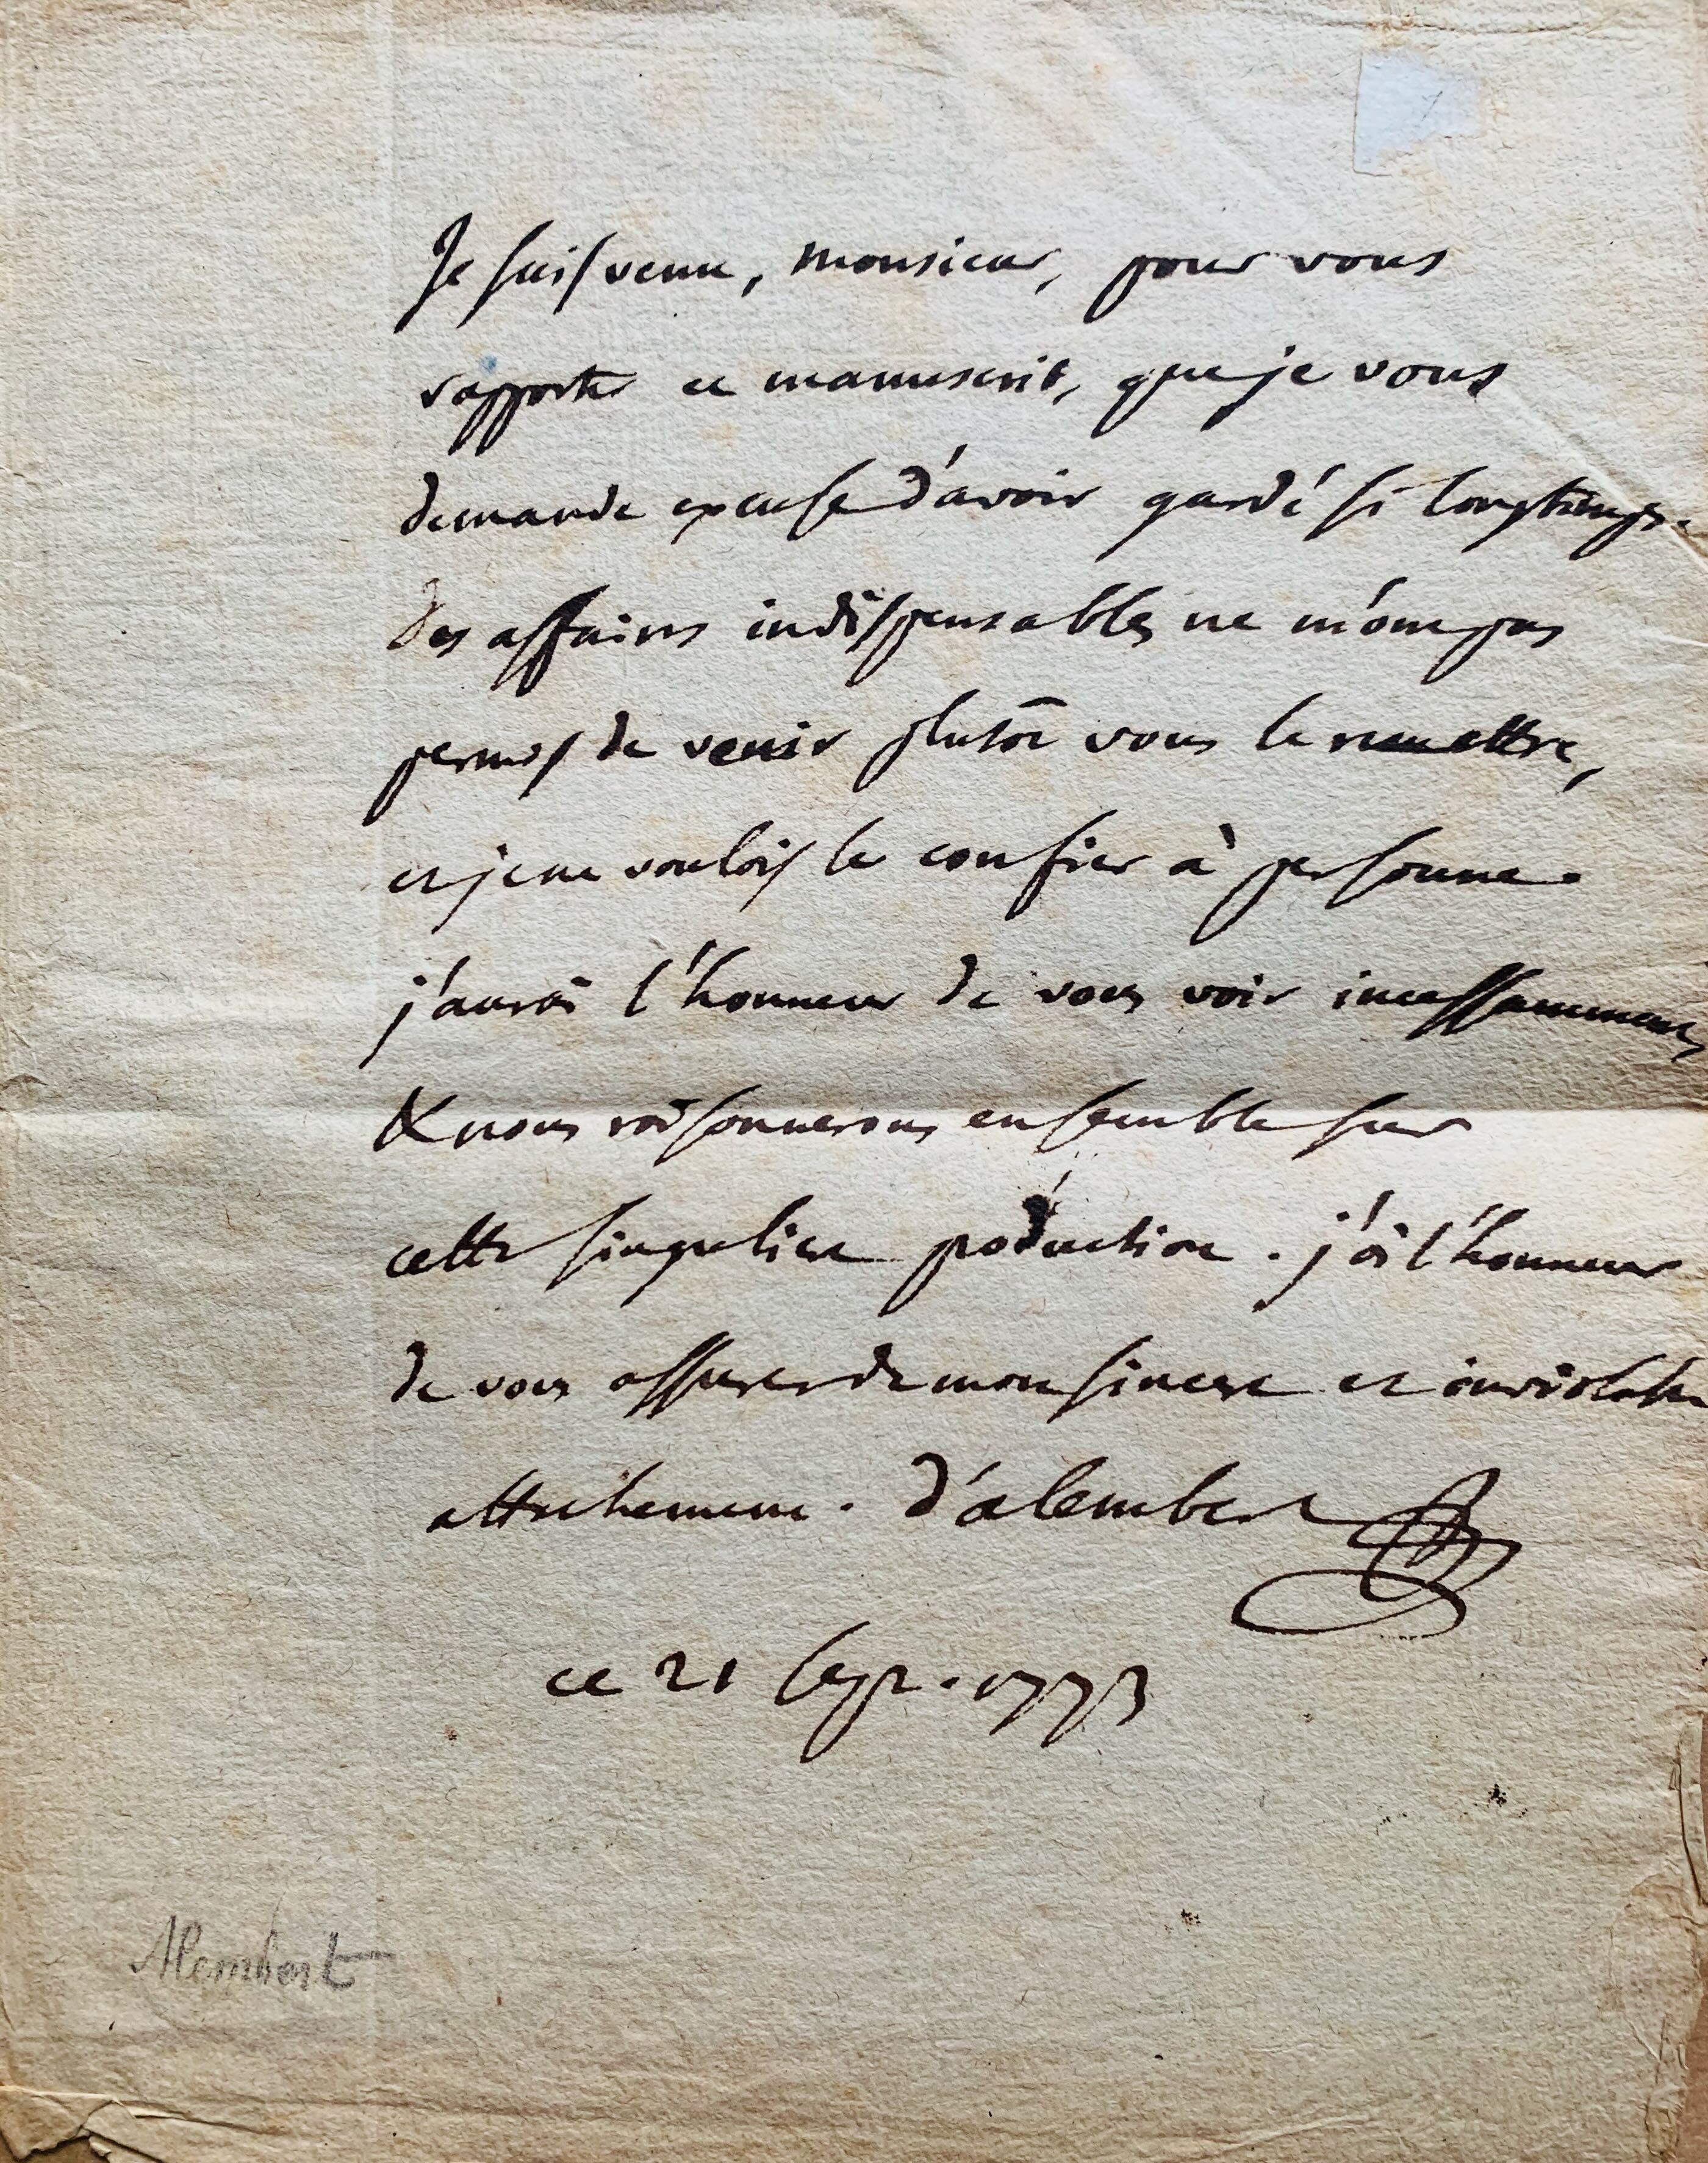 Je suis venu, monsieur, pour vous
rapporter ce manuscrit, que je vous
demande excuse d'avoir gardé si longtemps.
des affaires indispensables ne m'ont pas
permis de venir plutôt vous le remettre,
et je ne voulois le confier à personne.
j'aurai l'honneur de vous voir incessamment
& nous raisonnerons ensemble sur
cette singuliere production. j'ai l'honneur
de vous assurer de mon sincere et inviolable
attachement. d'alembert
ce 21 sept. 1773
Alembert